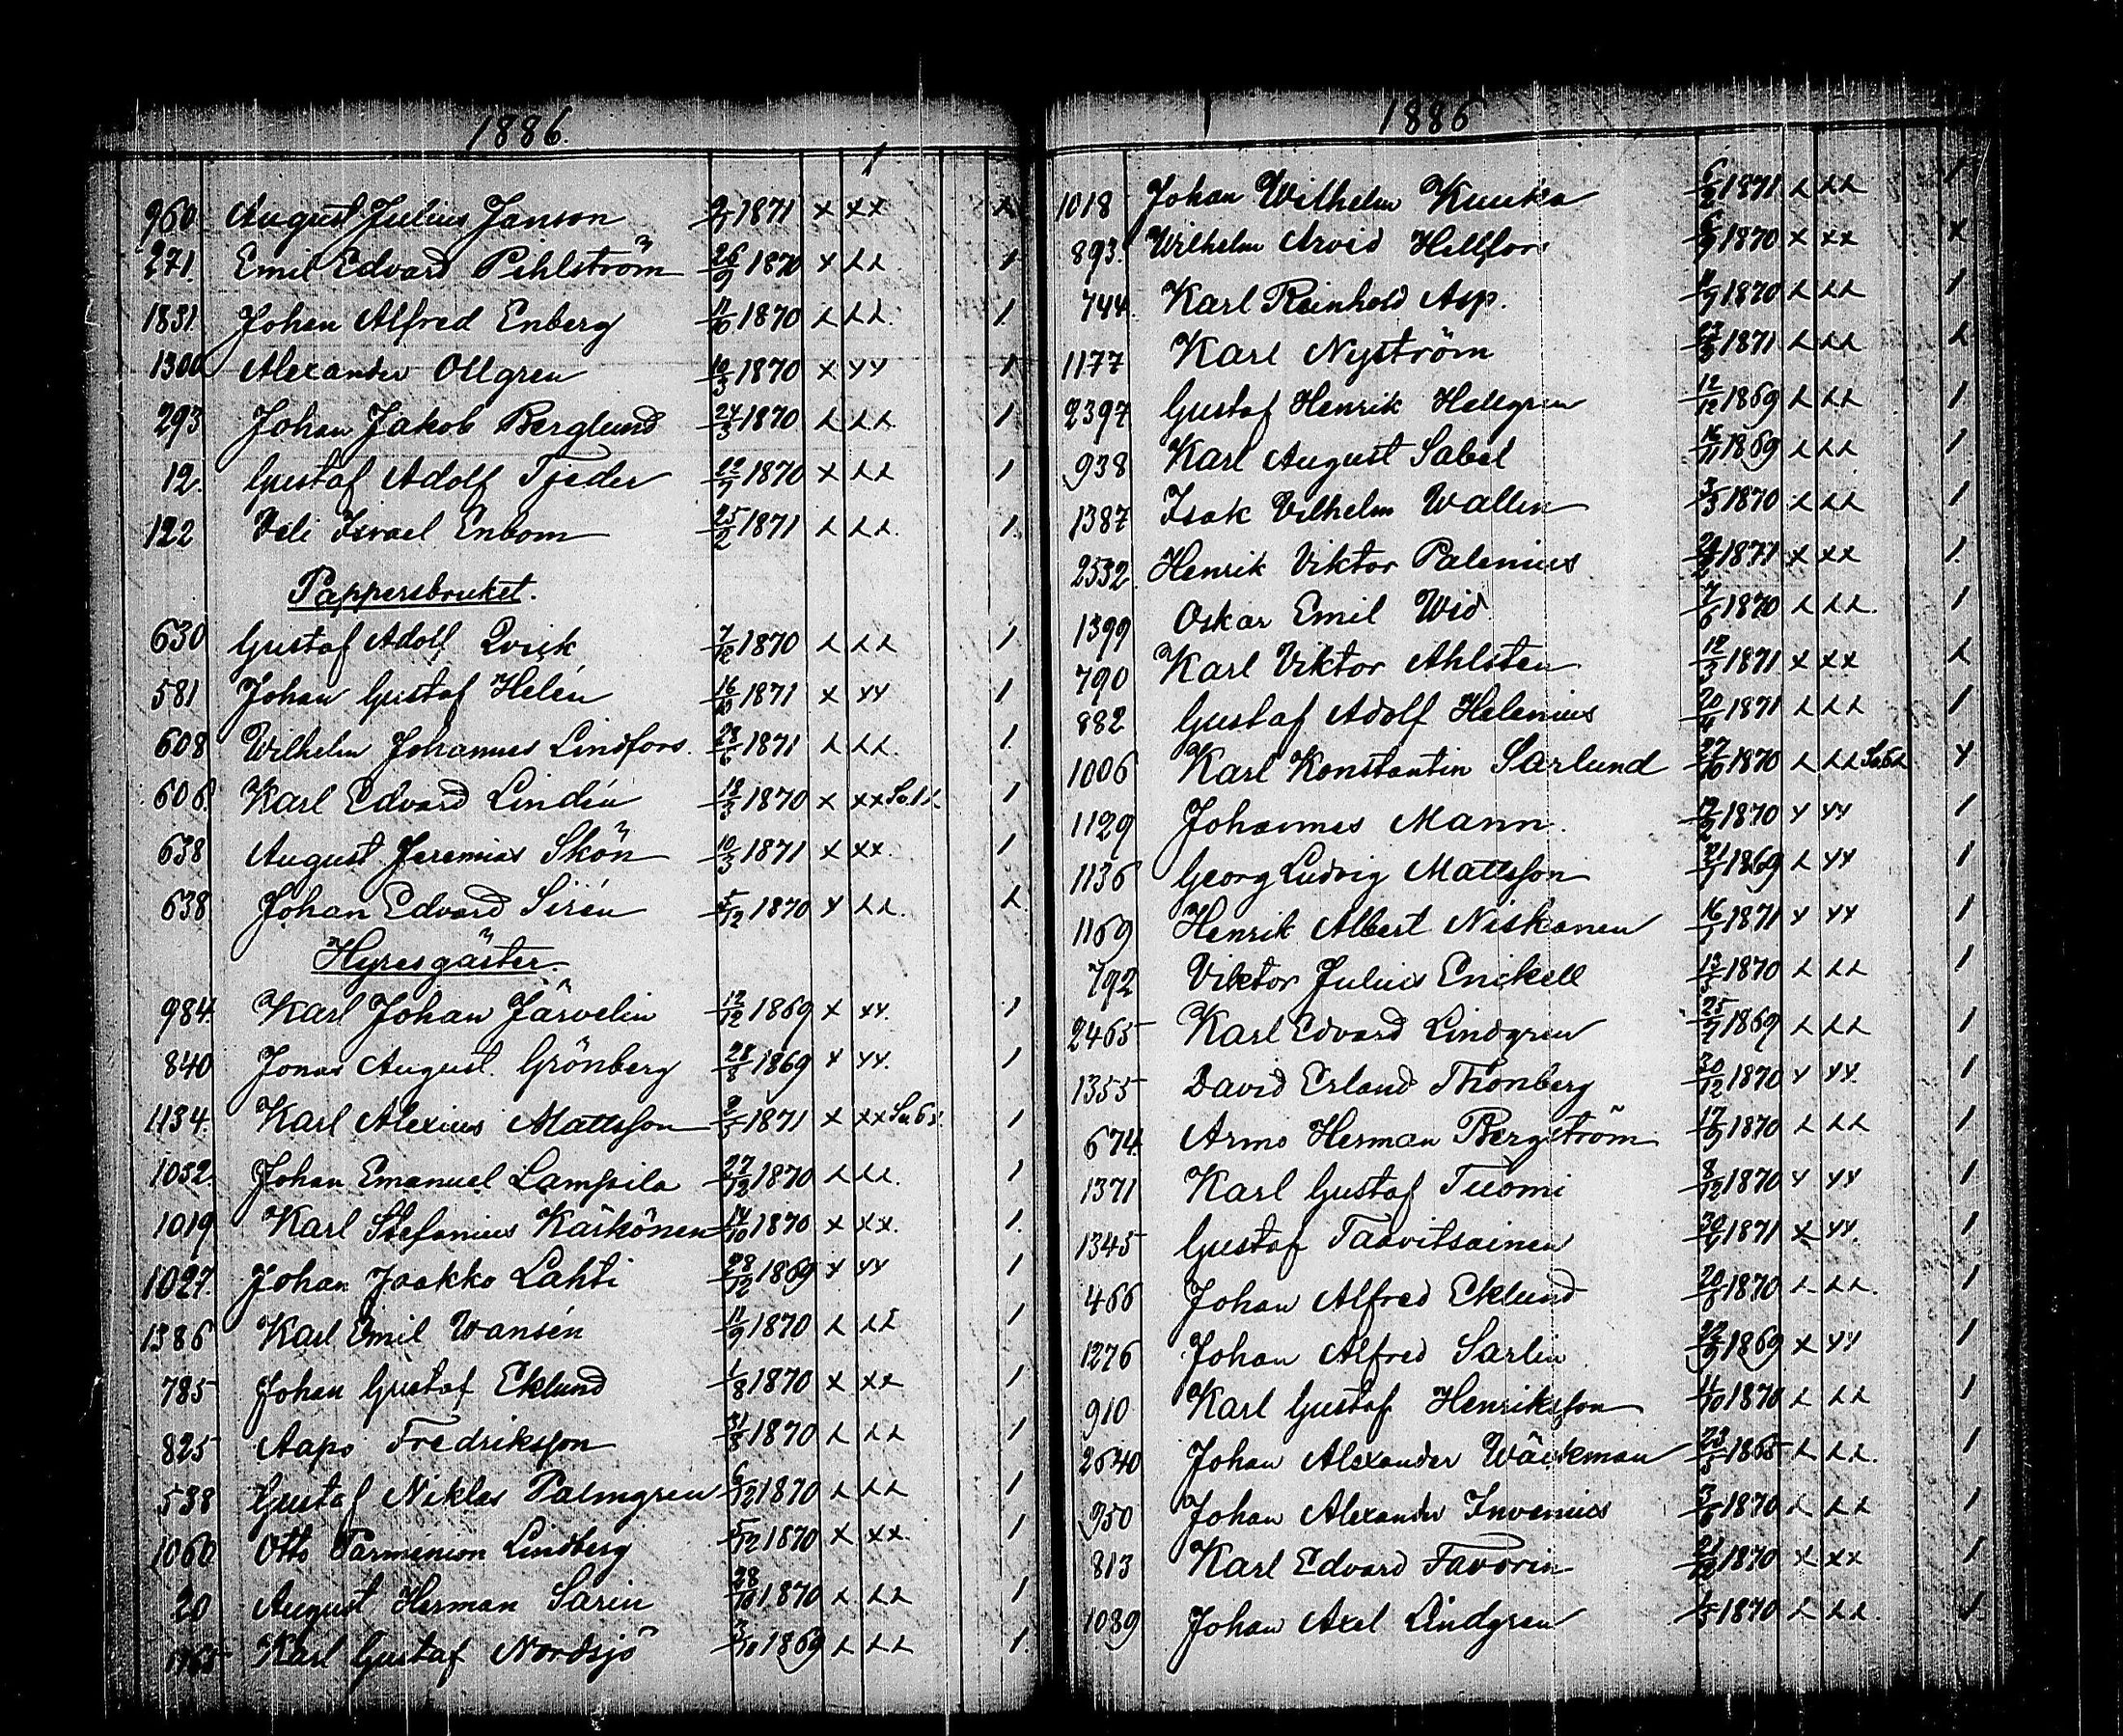 1886.
960 August Julius Janson 1871 x xx
271 Emil Edvard Pihlström 26/9 1870 x LL 1
1831 Johan Alfred Enberg 11/10 1870 L LL 1
1300 Alexander Ollgren 10/3 1870 x xx 1
293 Johan Jakob Berglund 24/3 1870 L LL 1
12. Gustaf Adolf Tjeder 22/7 1870 x LL 1
122 Israel Enbom 25/2 1871 L LL 1.
Pappersbruket.
630 Gustaf Adolf Qvick 7/12 1870 L LL 1
581 Johan Gustaf Helén 16/10 1871 x xx 1
608 Wilhelm Johannes Lindfors. 23/6 1871 L LL 1
606 Karl Edvard Lindén 18/3 1870 x xx 1
638 August Jeremias Skön 10/3 1871 x xx. 1
638 Johan Edvard Sirén 5/12 1870 x LL. L
Hyresgäster.
984. Karl Johan Järvelin 12/12 1869 x xx. 1
840 Jonas August. Grönberg 28/8 1869 x xx. 1
1134. Karl Alexius Mattsson 2/3 1871 x xx 1
1032. Johan Emanuel Lampila 27/12 1870 L LL. 1
1019 Karl Stefanius Kärkönen 14/10 1870 x xx. 1.
1027. Johan Jaakko Lahti 28/12 1869 x xx 1
1386 Karl Emil Wansén 11/9 1870 L LL 1
785 Johan Gustaf Eklund 1/8 1870 x xx 1
825 Aapo Fredriksson 31/8 1870 L LL 1
538 Gustaf Niklas Palmgren 6/12 1870 L LL 1
1060 Otto Parmenion Lindberg 5/12 1870 x xx. 1
20 August Herman Sarin 28/10 1870 L LL 1
Karl Gustaf Nordsjö 3/10 1869 L LL 1.
1886
1018 Johan Wilhelm Kuuka 6/2 1871 L LL 1
893. Wilhelm Arvid Hellfors 1870 x xx x
744. Karl Reinhold Asp. 1870 L LL 1
1177 Karl Nyström 1871 L LL L
2397 Gustaf Henrik Hellgren 12/12 1869 L LL 1
938 Karl August Sabel 16/11 1869 L LL 1
1387 Isak Vilhelm Wallin 3/5 1870 L LL 1
2532. Henrik Viktor Palenius 1871 x xx 1.
1399 Oskar Emil Wid. 7/6 1870 L LL. 1
790 Karl Viktor Ahlsten 12/3 1871 x xx L
882 Gustaf Adolf Helenius 1871 L LL 1
1006 Karl Konstantin Sarlund 27/10 1870 L LL x
1129 Johannes Mann. 1870 x xx 1
1136 Georg Ludvig Mattsson 1869 L xx 1
1169 Henrik Albert Niskanen 1871 x xx 1
792 Viktor Julius Enckell 1870 L LL 1
2465 Karl Edvard Lindgren 25/7 1869 L LL 1
1355 David Erland Thonberg 30/12 1870 x xx. 1
674. Armo Herman Bergström 17/9 1870 L LL 1
1371 Karl Gustaf Tuomi 8/12 1870 x xx 1
1345 Gustaf Taavitsainen 1871 x xx. 1
466 Johan Alfred Eklund 20/8 1870 L LL. 1
1276 Johan Alfred Sarlin 1869 x xx 1
910 Karl Gustaf Henriksson 11/10 1870 L LL 1
2640 Johan Alexander Wäckman 23/5 1865 L LL. 1
950 Johan Alexander Invenius 3/6 1870 L LL 1
813 Karl Edvard Favorin 21/12 1870 x xx 1
1039 Johan Axel Lindgren 1870 L LL. 1